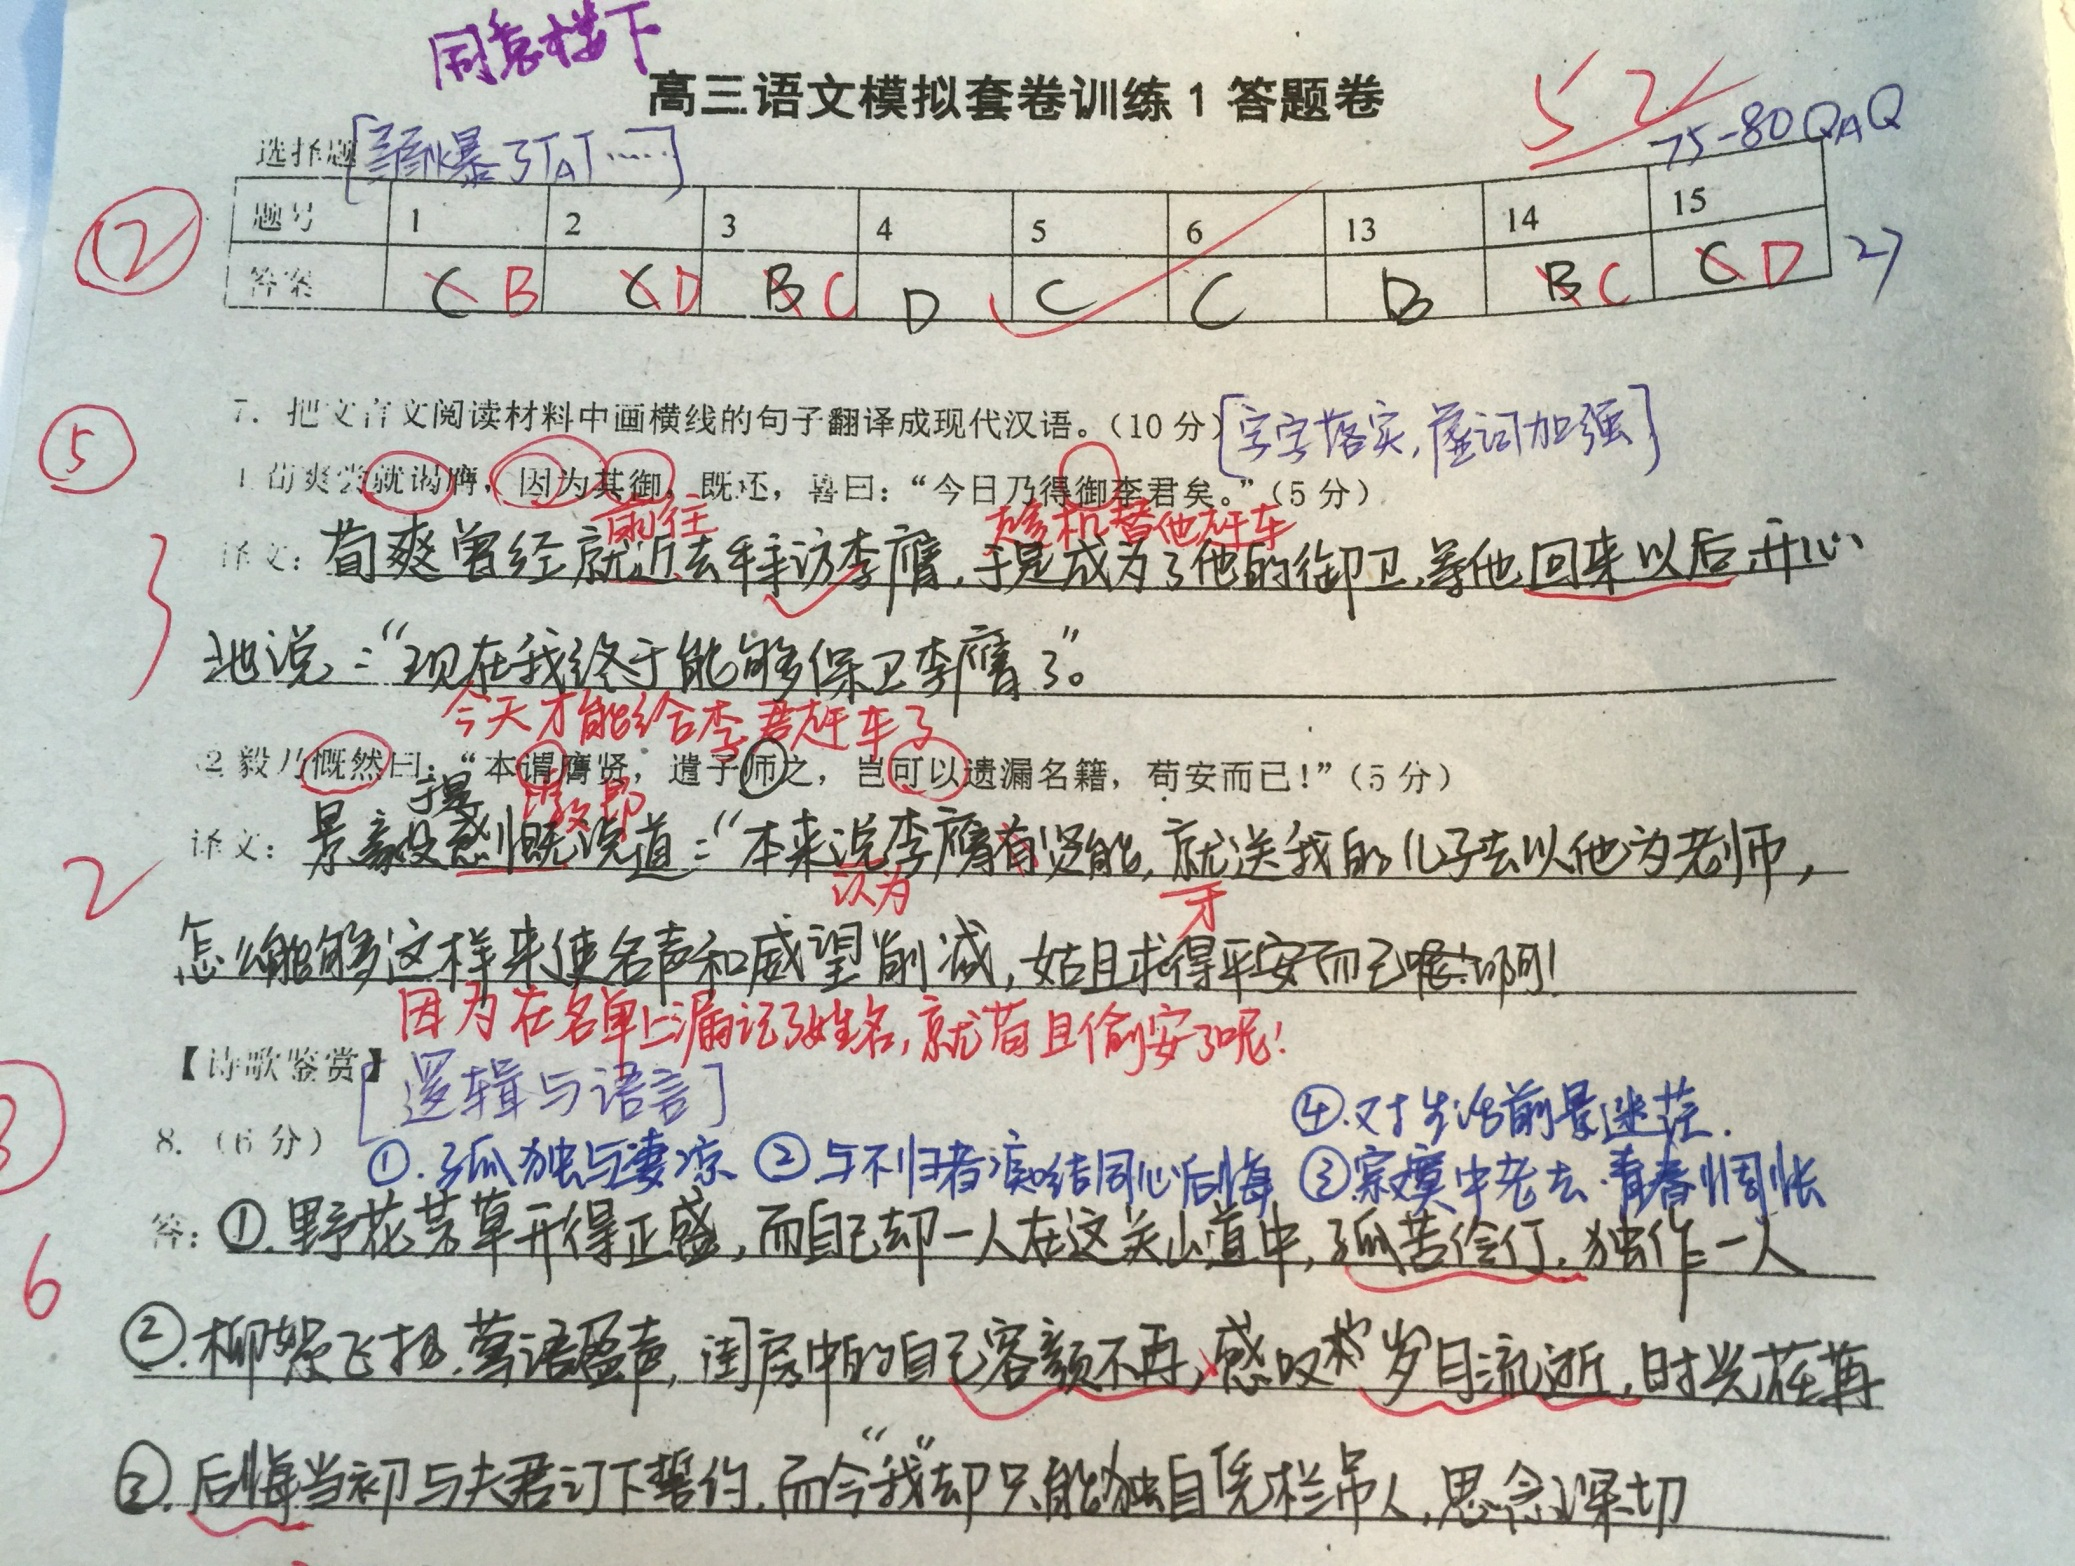 同意楼下
高三语文模拟套卷训练1答题卷
52
75-80QAQ
选择题
爆了TAT……
题号 1 2 3 4 5 6 13 14 15
答案 C B C D B C D C C B B C C D
12
27
7. 把文言文阅读材料中画横线的句子翻译成现代汉语。(10分)
[字字落实,虚词加强]
5
1 荀爽尝就谒膺,因为其御,既还,喜曰:“今日乃得御李君矣。”(5分)
前往
趁机替他赶车
译文: 荀爽曾经就近去拜访李膺,于是成为了他的御卫,等他回来以后开心
地说:“现在我终于能够保卫李膺了”。
3
今天才能给李君赶车了
2 毅乃慨然曰:“本谓膺贤,遣子师之,岂可以遗漏名籍,苟安而已!”(5分)
于是
译文: 景毅感慨说道:“本来说李膺有贤能,就送我的儿子去以他为老师,
2
认为
才
怎么能够这样来使名声和威望削减,姑且求得平安而已啊!
因为在名单上漏记了姓名,就苟且偷安了呢!
【诗歌鉴赏】
[逻辑与语言]
④.对生活前景迷茫.
8. (6分)
①.孤独与凄凉 ②与不归者痴结同心后悔 ③寂寞中老去.青春惆怅
答: ①.野花芳草开得正盛,而自己却一人在这关山道中,孤苦伶仃.独作一人
6
②.柳絮飞扬.莺语盈声,闺房中的自己容颜不再,感叹岁月流逝,时光荏苒
③.后悔当初与夫君订下誓约.而今“我”却只能独自凭栏吊人,思念深切